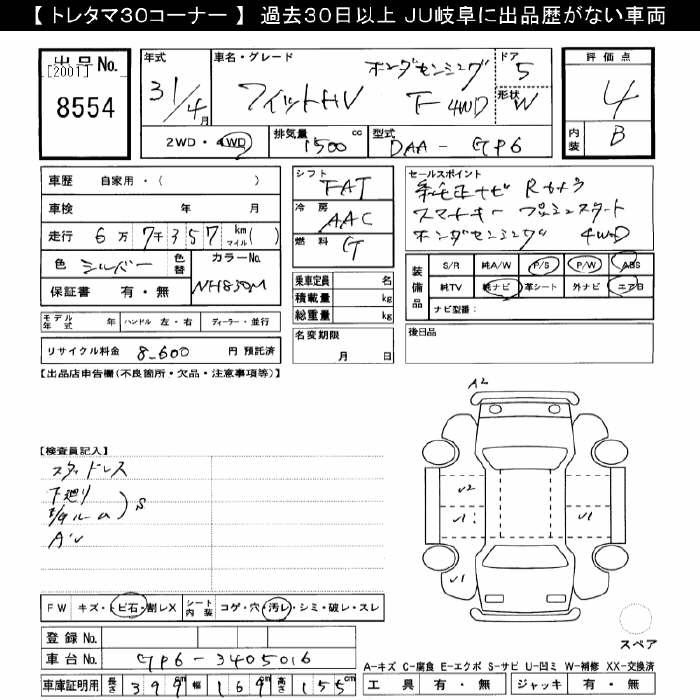 【トレタマ30コーナー】 過去30日以上 JU岐阜に出品歴がない車両
出品No.
[2001]
8554
年式
31/4月
車名・グレード
ホンダセンシング
フィットHV F 4WD
ドア
5
形状
W
評価点
4
内装
B
2WD・4WD
排気量 1500 cc
型式 DAA-GP6
車歴 自家用・( )
車検 年 月
走行 6万7千357 km マイル( )
色 シルバー 色替
カラーNo. NH830M
保証書 有・無
シフト FAT
冷房 AAC
燃料 G
乗車定員 名
積載量 kg
総重量 kg
セールスポイント
純正ナビ Rカメラ
スマートキー プッシュスタート
ホンダセンシング 4WD
装備品
S/R 純A/W P/S P/W ABS
純TV 純ナビ 革シート 外ナビ エアB
ナビ型番:
モデル年式 年 ハンドル 左・右 ディーラー・並行
名変期限 月 日
後日品
リサイクル料金 8,600 円 預託済
【出品店申告欄(不良箇所・欠品・注意事項等)】
A2
【検査員記入】
スタッドレス
下廻り
E/gルーム
S
U2
U1
U1
U1
FW キズ・トビ石・割レX シート内装 コゲ・穴・汚レ・シミ・破レ・スレ
登録No.
車台No. GP6-3405016
スペア
A-キズ C-腐食 E-エクボ S-サビ U-凹ミ W-補修 XX-交換済
車庫証明用 長さ 399cm 幅 169cm 高さ 155cm
工具 有・無 ジャッキ 有・無